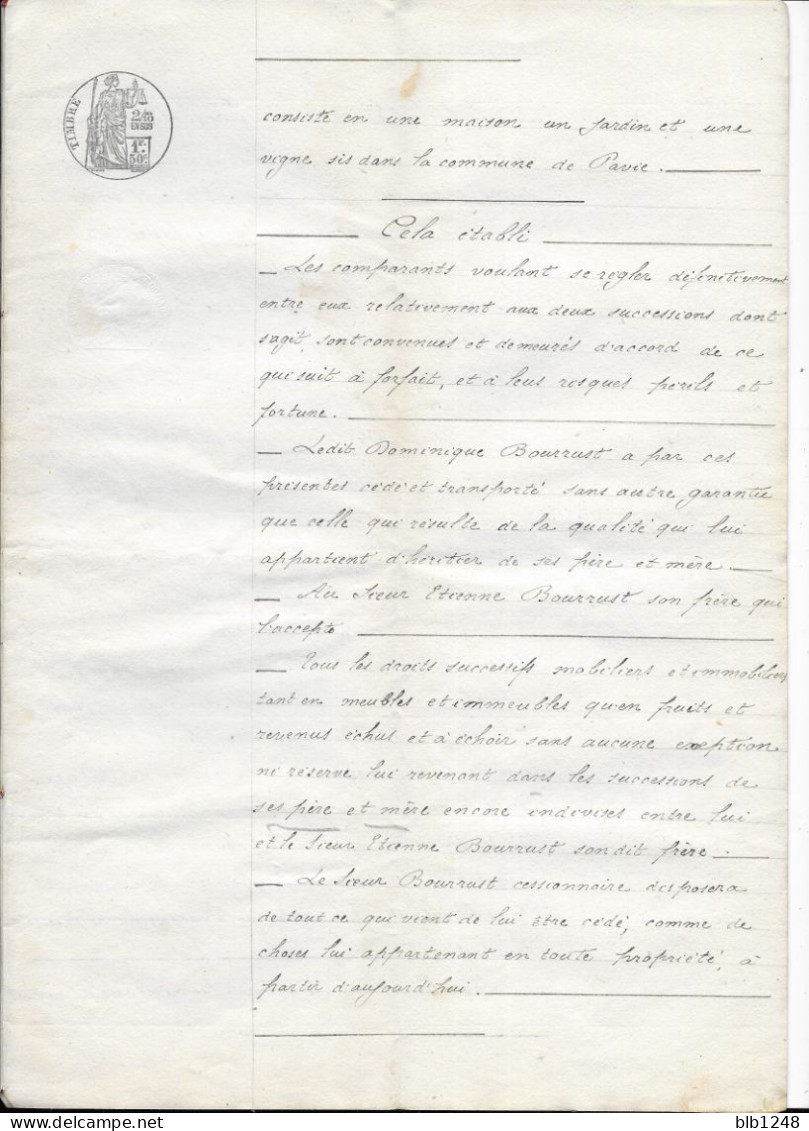 TIMBRE
2/10
EN SUS
1F.
50C.
consiste en une maison un jardin et une
vigne sis dans la commune de Pavie.
Cela établi
Les comparants voulant se règler définitivement
entre eux relativement aux deux successions dont
s'agit, sont convenues et demeurés d'accord de ce
qui suit à forfait, et à leus risques périls et
fortune.
Ledit Dominique Bourrust a par ces
présentes cédé et transporté sans autre garantie
que celle qui résulte de la qualité qui lui
appartient d'héritier de ses père et mère.
Au Sieur Etienne Bourrust son frère qui
l'accepte
Tous les droits successifs mobiliers et immobiliers
tant en meubles et immeubles qu'en fruits et
revenus échus et à échoir sans aucune exeption
ni réserve lui revenant dans les successions de
ses père et mère encore indivises entre lui
et le Sieur Etienne Bourrust son dit frère.
Le Sieur Bourrust cessionnaire disposera
de tout ce qui vient de lui être cédé, comme de
choses lui appartenant en toute propriété, à
partir d'aujourd'hui.
blb1248